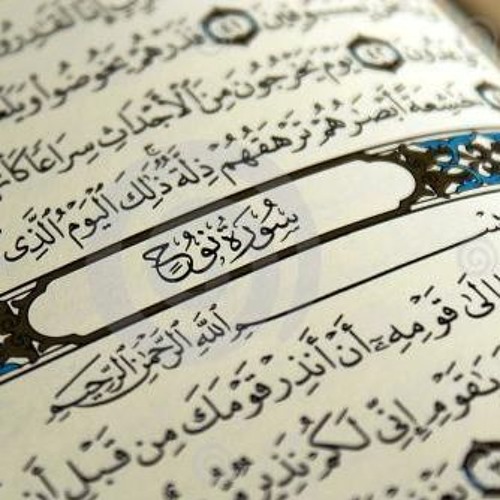 إِنَّا لَقَٰدِرُو
بِمَسْبُوقِينَ ٤١ فَذَرْهُمْ يَخُوضُوا۟ وَيَلْعَ
يَوْمَ يَخْرُجُونَ مِنَ ٱلْأَجْدَاثِ سِرَاعًا كَأَ
خَٰشِعَةً أَبْصَٰرُهُمْ تَرْهَقُهُمْ ذِلَّةٌ ۚ ذَٰلِكَ ٱلْيَوْمُ ٱلَّذِى
سُورَةُ نُوحٍ
ٱللَّهِ ٱلرَّحْمَٰنِ ٱلرَّحِيمِ
إِلَىٰ قَوْمِهِۦٓ أَنْ أَنذِرْ قَوْمَكَ مِن قَبْلِ أَن
يَٰقَوْمِ إِنِّى لَكُمْ نَذِيرٌ